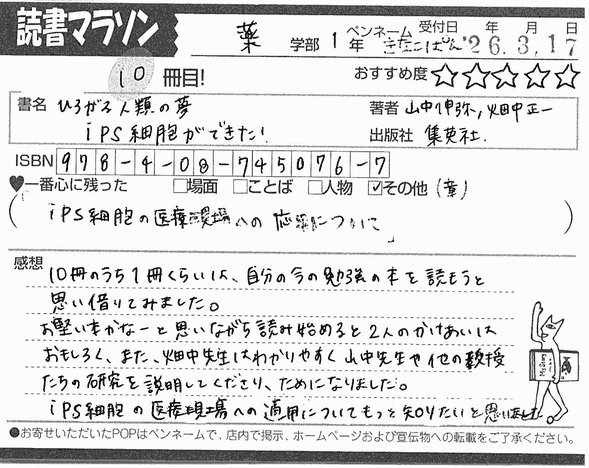 読書マラソン
薬 学部 1 年 ペンネーム きなこぱん 受付日 年 月 日 '26.3.17
10 冊目! おすすめ度☆☆☆☆☆
書名 ひろがる人類の夢 著者 山中伸弥, 畑中正一
iPS細胞ができた! 出版社 集英社.
ISBN 978-4-08-745076-7
♥一番心に残った □場面 □ことば □人物 ☑その他 (章)
( iPS細胞の医療現場への 応用について )
感想
10冊のうち1冊くらいは、自分の今の勉強の本を読もうと
思い借りてみました。
お堅い本かなーと思いながら読み始めると2人のかけあいは
おもしろく、また、畑中先生はわかりやすく山中先生や他の教授
たちの研究を説明してくださり、ためになりました。
iPS細胞の医療現場への適用についてもっと知りたいと思いました。
●お寄せいただいたPOPはペンネームで、店内で掲示、ホームページおよび宣伝物への転載をご了承ください。